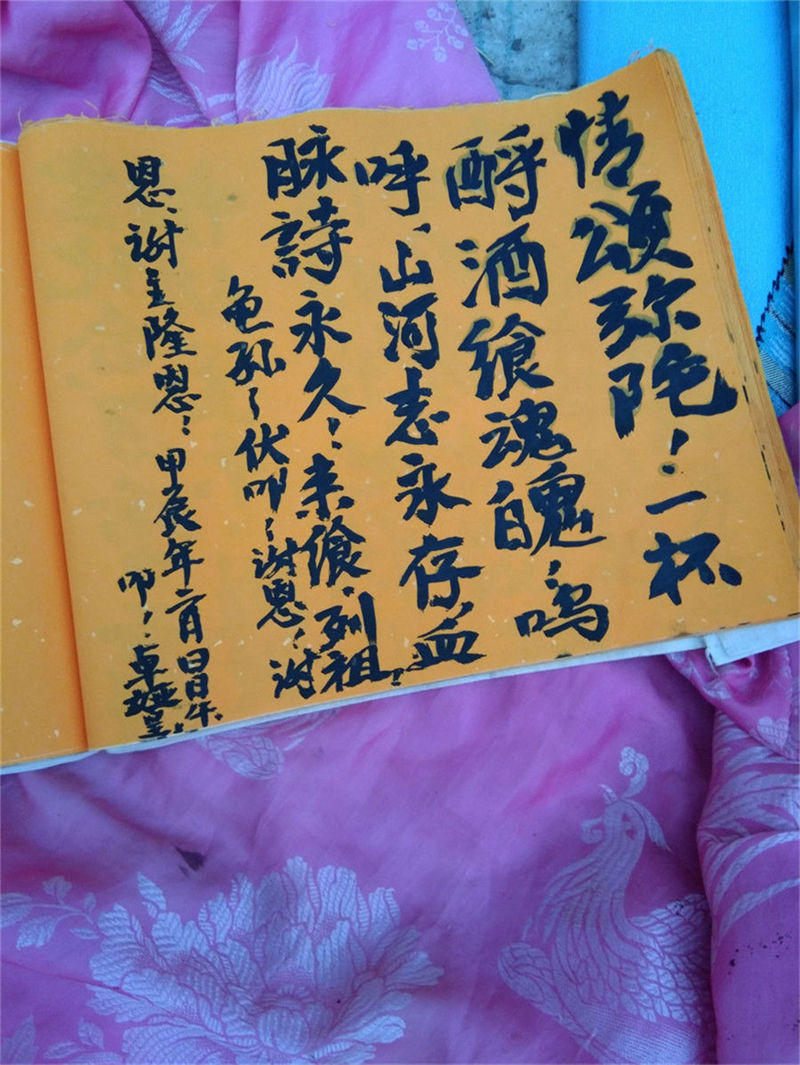 情颂弥陀！一杯
酹酒飨魂魄，呜
呼、山河志永存，血
脉詩永久！来飨、列祖！
龟孙～伏叩～谢恩！谢
恩、谢主隆恩！甲辰年六月日日午
叩！卓娅呈